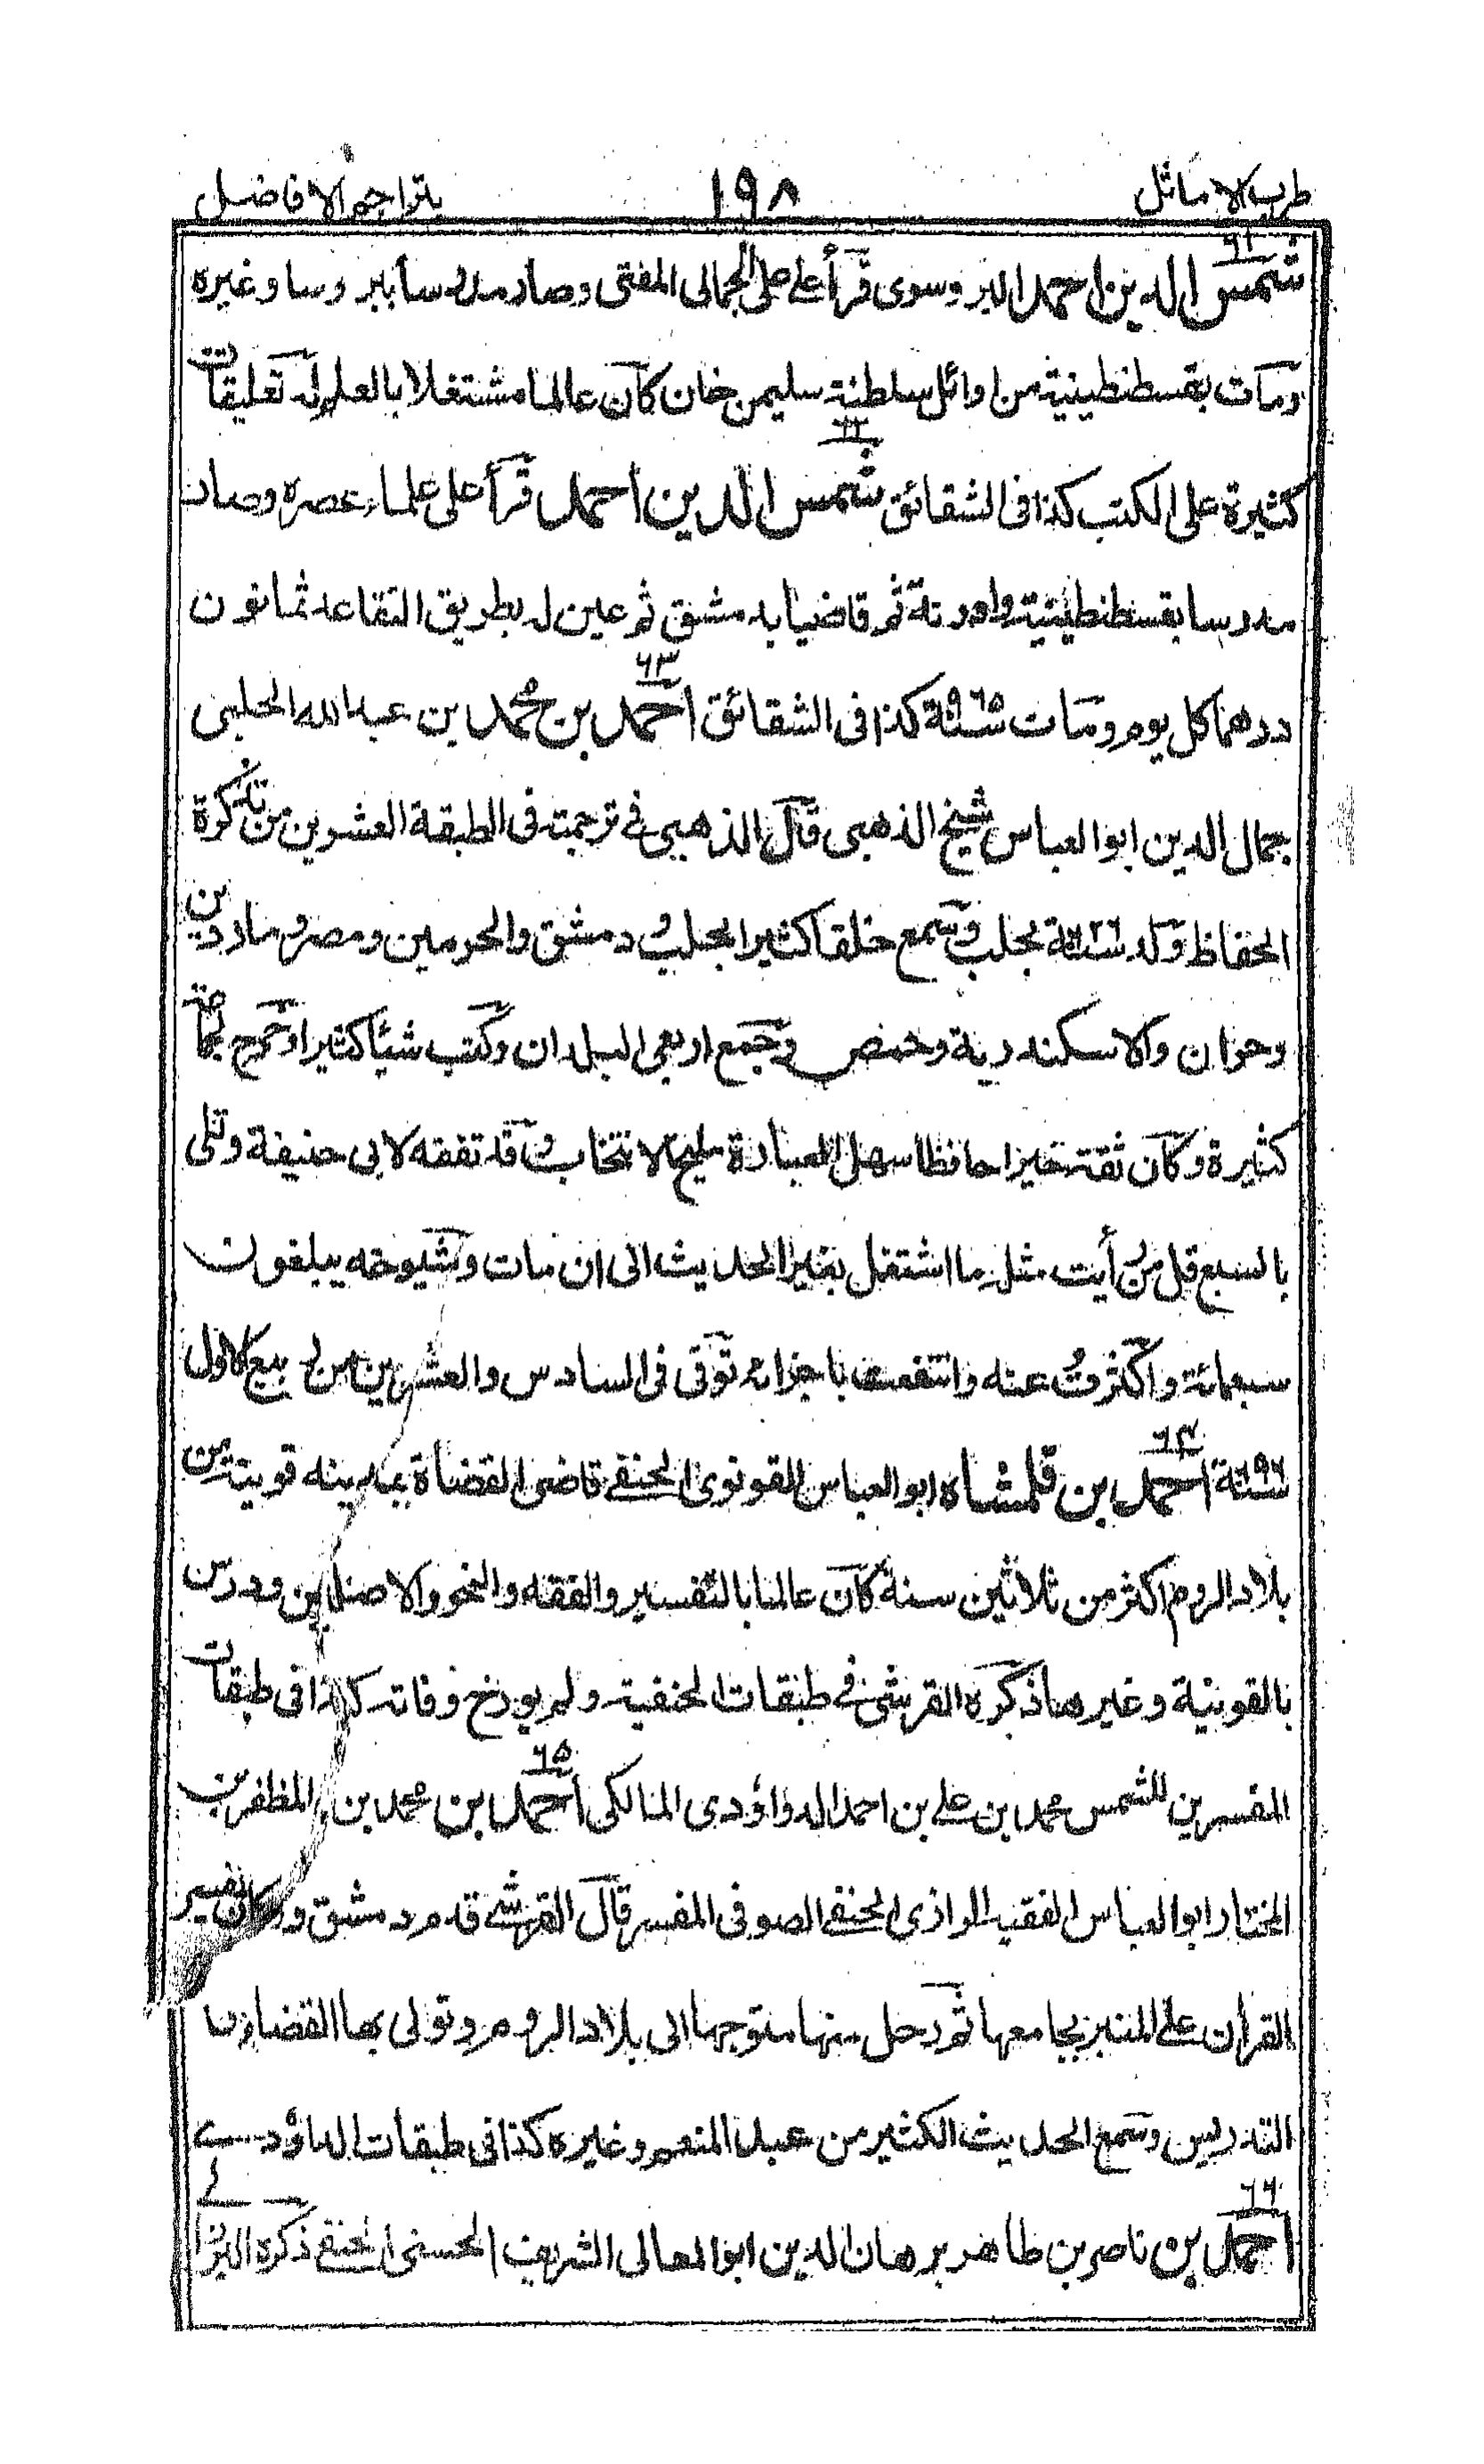 طرب الاماثل ١٩٨ بتراجم الافاضل
٦١
شمس الدين احمد البروسوى قرأ على على الجمالى المفتى وصار مدرسا ببروسا وغيره
ومات بقسطنطينية من اوائل سلطنة سليمن خان كان عالما مشتغلا بالعلم وله تعليقات
كثيرة على الكتب كذا فى الشقائق ٦٢ شمس الدين احمد قرأ على علماء عصره وصار
مدرسا بقسطنطينية وادرنة ثم قاضيا بدمشق ثم عين له بطريق التقاعد ثمانون
درهما كل يوم ومات سنة ٩٦٥ كذا فى الشقائق ٦٣ احمد بن محمد بن عبد الله الحلبى
جمال الدين ابو العباس شيخ الذهبى قال الذهبى فى ترجمته فى الطبقة العشرين من تذكرة
الحفاظ ولد سنة ٦٢٦ بحلب وسمع خلقا كثيرا بحلب و دمشق والحرمين ومصر وماردين
وحران والاسكندرية وحمص وجمع اربعى البلدان وكتب شيئا كثيرا وخرج لجماعة
كثيرة وكان ثقة خيرا حافظا سهل العبارة مليح الانتخاب وقد تفقه لابى حنيفة وتلى
بالسبع قل من رأيت مثله ما اشتغل بغير الحديث الى ان مات وشيوخه يبلغون
سبعمائة واكثرت عنه وانتفعت باجزائه توفى فى السادس والعشرين من ربيع الاول
سنة ٦٩٦ ٦٤ احمد بن قلمشاه ابو العباس القونوى الحنفى قاضى القضاة بمدينه قوينة من
بلاد الروم اكثر من ثلاثين سنة كان عالما بالتفسير والفقه والنحو والاصلين ودرس
بالقوينية وغيرها ذكره القرشى فى طبقات الحنفية ولم يورخ وفاته كذا فى طبقات
المفسرين للشمس محمد بن على بن احمد الداؤدى المالكى ٦٥ احمد بن محمد بن المظفر بن
المختار ابو العباس الفقيه الرازى الحنفى الصوفى المفسر قال القرشى قدم دمشق وكان يفسر
القرآن على المنبر بجامعها ثم رحل منها متوجها الى بلاد الروم وتولى بها القضاء
التدريس وسمع الحديث الكثير من عبد المنعم وغيره كذا فى طبقات الداؤدى
٦٦ احمد بن ناصر بن طاهر برهان الدين ابو المعالى الشريف الحسنى الحنفى ذكره البرزالى